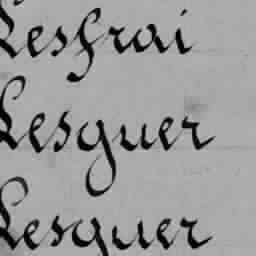 Lesfrai
Lesguer
Lesquer